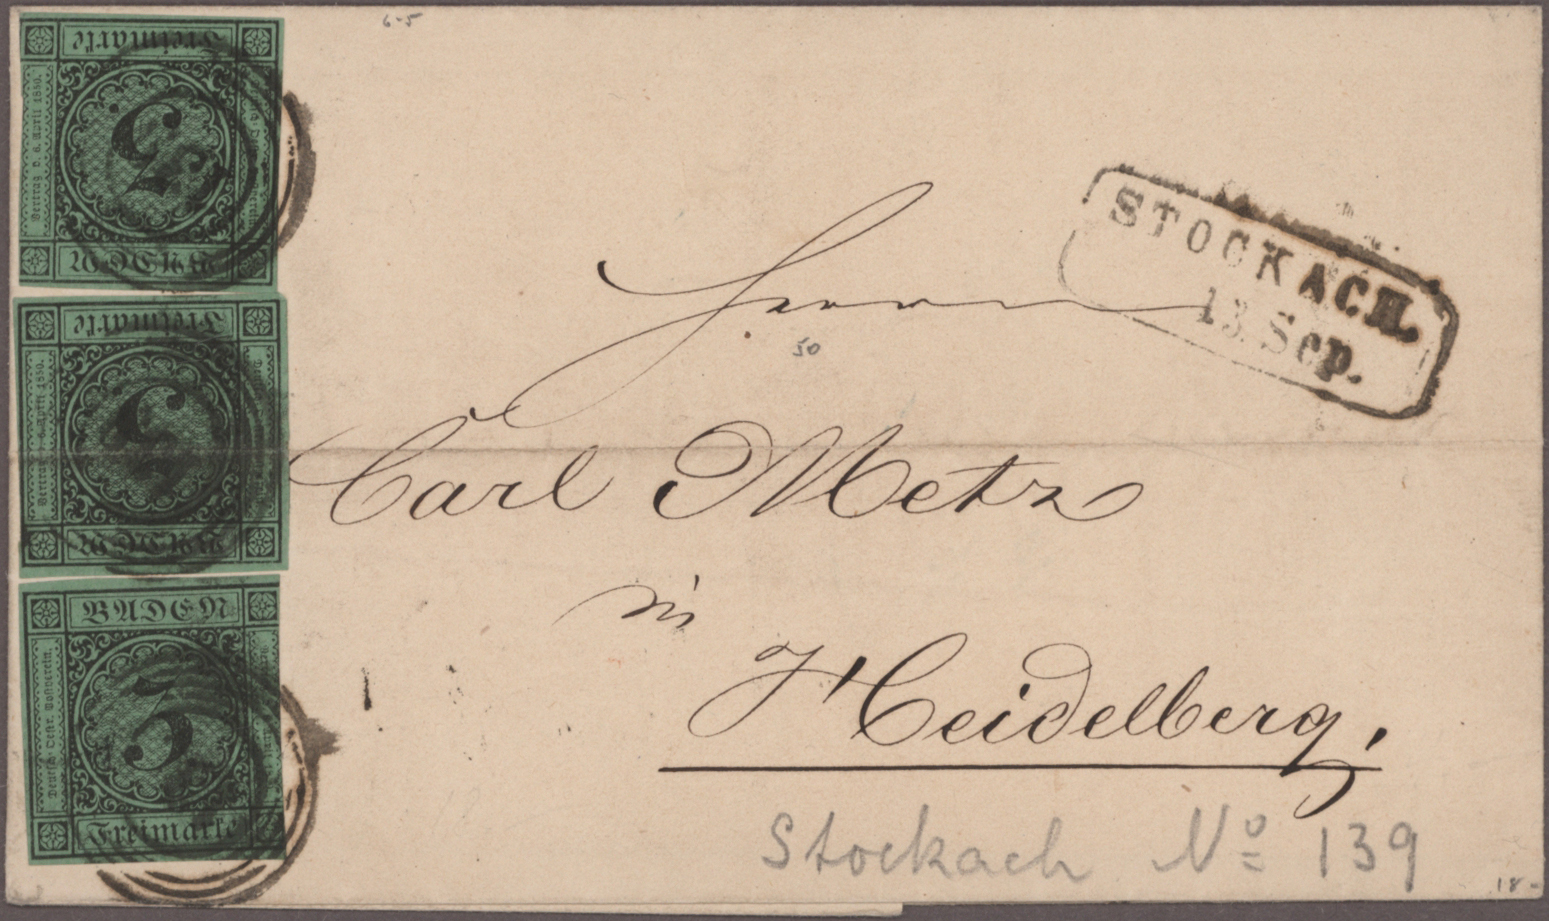 6-5
Freimarke
Vertrag v. 6. April 1850.
3
BADEN
Freimarke
Vertrag v. 6. April 1850.
3
BADEN
BADEN
Deutsch-Oestr. Postverein.
3
Freimarke
STOCKACH.
13. Sep.
Herrn
50
Carl Metz
in
Heidelberg,
Stockach No 139
18-